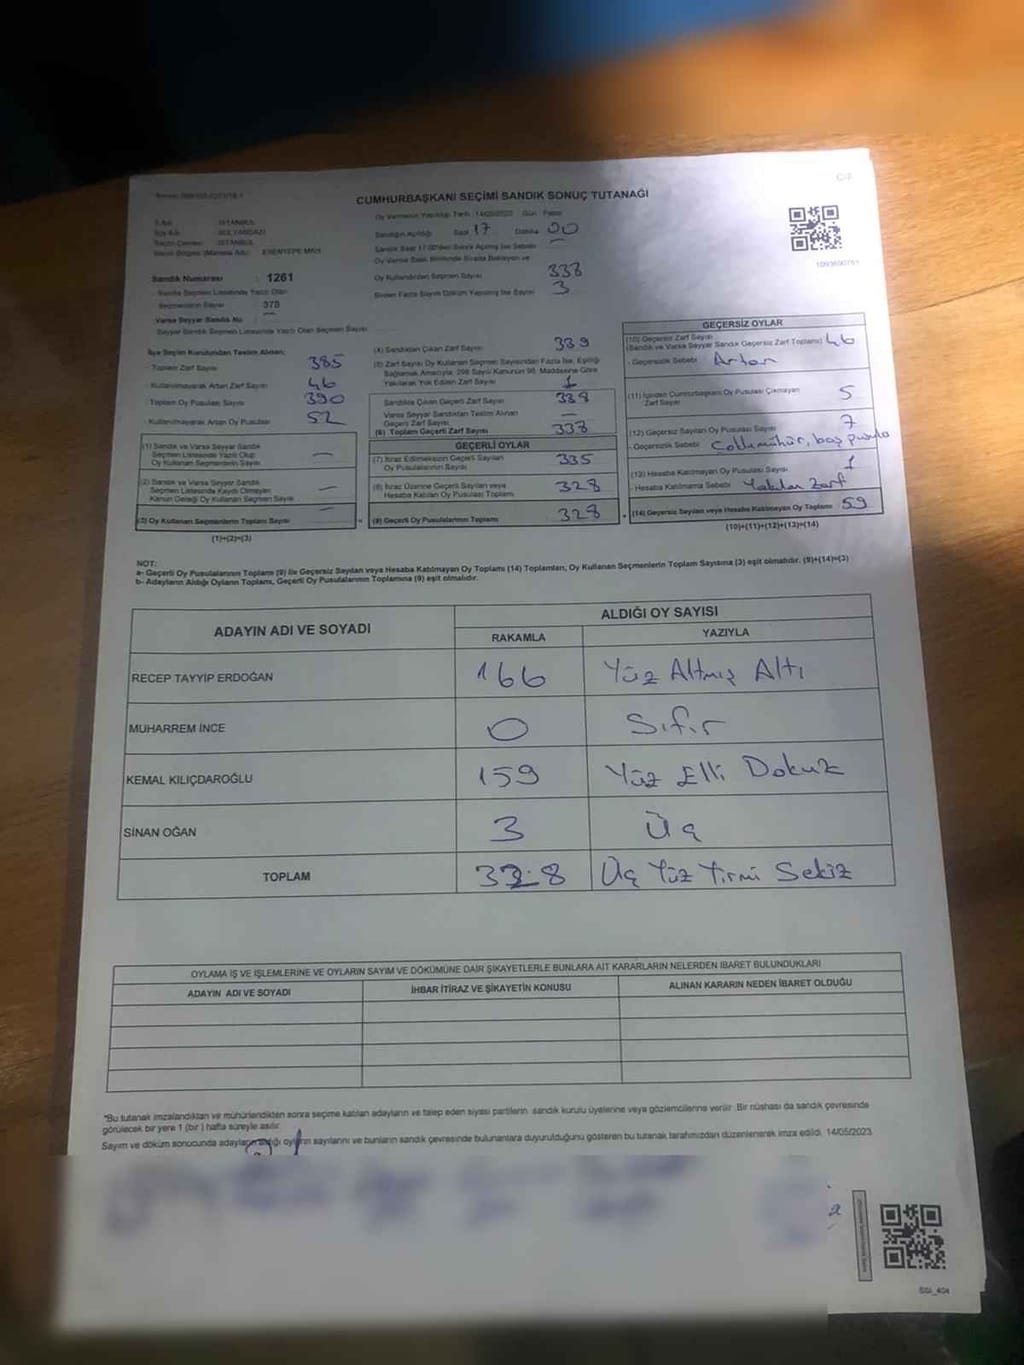 CUMHURBAŞKANI SEÇİMİ SANDIK SONUÇ TUTANAĞI
C/2
Oy Vermenin Yapıldığı Tarih : 14/05/2023 Gün : Pazar
İl Adı : İSTANBUL
İlçe Adı : SULTANGAZİ
Seçim Çevresi : İSTANBUL
ESENTEPE MAH.
Sandığın Açıldığı Saat 17 Dakika 00
Sandık Saat 17:00'den Sonra Açılmış İse Sebebi
Oy Verme Saati Bitiminde Sırada Bekleyen ve
Oy Kullandırılan Seçmen Sayısı 338
Birden Fazla Sayım Döküm Yapılmış İse Sayısı 3
1093690761
Sandık Numarası : 1261
Sandık Seçmen Listesinde Yazılı Olan
Seçmenlerin Sayısı : 378
Varsa Seyyar Sandık No : —
Seyyar Sandık Seçmen Listesinde Yazılı Olan Seçmen Sayısı
İlçe Seçim Kurulundan Teslim Alınan;
Toplam Zarf Sayısı 385
- Kullanılmayarak Artan Zarf Sayısı 46
Toplam Oy Pusulası Sayısı 390
- Kullanılmayarak Artan Oy Pusulası 52
(1) Sandık ve Varsa Seyyar Sandık
Seçmen Listesinde Yazılı Olup
Oy Kullanan Seçmenlerin Sayısı —
(2) Sandık ve Varsa Seyyar Sandık
Seçmen Listesinde Kaydı Olmayan
Kanun Gereği Oy Kullanan Seçmen Sayısı —
(3) Oy Kullanan Seçmenlerin Toplam Sayısı —
(1)+(2)=(3)
(4) Sandıktan Çıkan Zarf Sayısı 339
(5) Zarf Sayısı Oy Kullanan Seçmen Sayısından Fazla İse, Eşitliği
Sağlamak Amacıyla, 298 Sayılı Kanunun 98. Maddesine Göre
Yakılarak Yok Edilen Zarf Sayısı 1
Sandıkta Çıkan Geçerli Zarf Sayısı 338
Varsa Seyyar Sandıktan Teslim Alınan
Geçerli Zarf Sayısı —
(6) Toplam Geçerli Zarf Sayısı 338
GEÇERLİ OYLAR
(7) İtiraz Edilmeksizin Geçerli Sayılan
Oy Pusulalarının Sayısı 335
(8) İtiraz Üzerine Geçerli Sayılan veya
Hesaba Katılan Oy Pusulası Toplamı 328
(9) Geçerli Oy Pusulalarının Toplamı 328
GEÇERSİZ OYLAR
(10) Geçersiz Zarf Sayısı
(Sandık ve Varsa Seyyar Sandık Geçersiz Zarf Toplamı) 46
- Geçersizlik Sebebi Artan
(11) İçinden Cumhurbaşkanı Oy Pusulası Çıkmayan
Zarf Sayısı 5
(12) Geçersiz Sayılan Oy Pusulası Sayısı 7
- Geçersizlik Sebebi
(13) Hesaba Katılmayan Oy Pusulası Sayısı 1
- Hesaba Katılmama Sebebi Yakılan Zarf
(14) Geçersiz Sayılan veya Hesaba Katılmayan Oy Toplamı 59
(10)+(11)+(12)+(13)=(14)
NOT:
a- Geçerli Oy Pusulalarının Toplamı (9) ile Geçersiz Sayılan veya Hesaba Katılmayan Oy Toplamı (14) Toplamları, Oy Kullanan Seçmenlerin Toplam Sayısına (3) eşit olmalıdır. (9)+(14)=(3)
b- Adayların Aldığı Oyların Toplamı, Geçerli Oy Pusulalarının Toplamına (9) eşit olmalıdır.
ADAYIN ADI VE SOYADI
ALDIĞI OY SAYISI
RAKAMLA YAZIYLA
RECEP TAYYİP ERDOĞAN 166 Yüz Altmış Altı
MUHARREM İNCE 0 Sıfır
KEMAL KILIÇDAROĞLU 159 Yüz Elli Dokuz
SİNAN OĞAN 3 Üç
TOPLAM 328 Üç Yüz Yirmi Sekiz
OYLAMA İŞ VE İŞLEMLERİNE VE OYLARIN SAYIM VE DÖKÜMÜNE DAİR ŞİKAYETLERLE BUNLARA AİT KARARLARIN NELERDEN İBARET BULUNDUKLARI
ADAYIN ADI VE SOYADI İHBAR İTİRAZ VE ŞİKAYETİN KONUSU ALINAN KARARIN NEDEN İBARET OLDUĞU
*Bu tutanak imzalandıktan ve mühürlendikten sonra seçime katılan adayların ve talep eden siyasi partilerin sandık kurulu üyelerine veya gözlemcilerine verilir. Bir nüshası da sandık çevresinde
görülecek bir yere 1 (bir) hafta süreyle asılır.
Sayım ve döküm sonucunda adayların aldığı oyların sayılarını ve bunların sandık çevresinde bulunanlara duyurulduğunu gösteren bu tutanak tarafımızdan düzenlenerek imza edildi. 14/05/2023